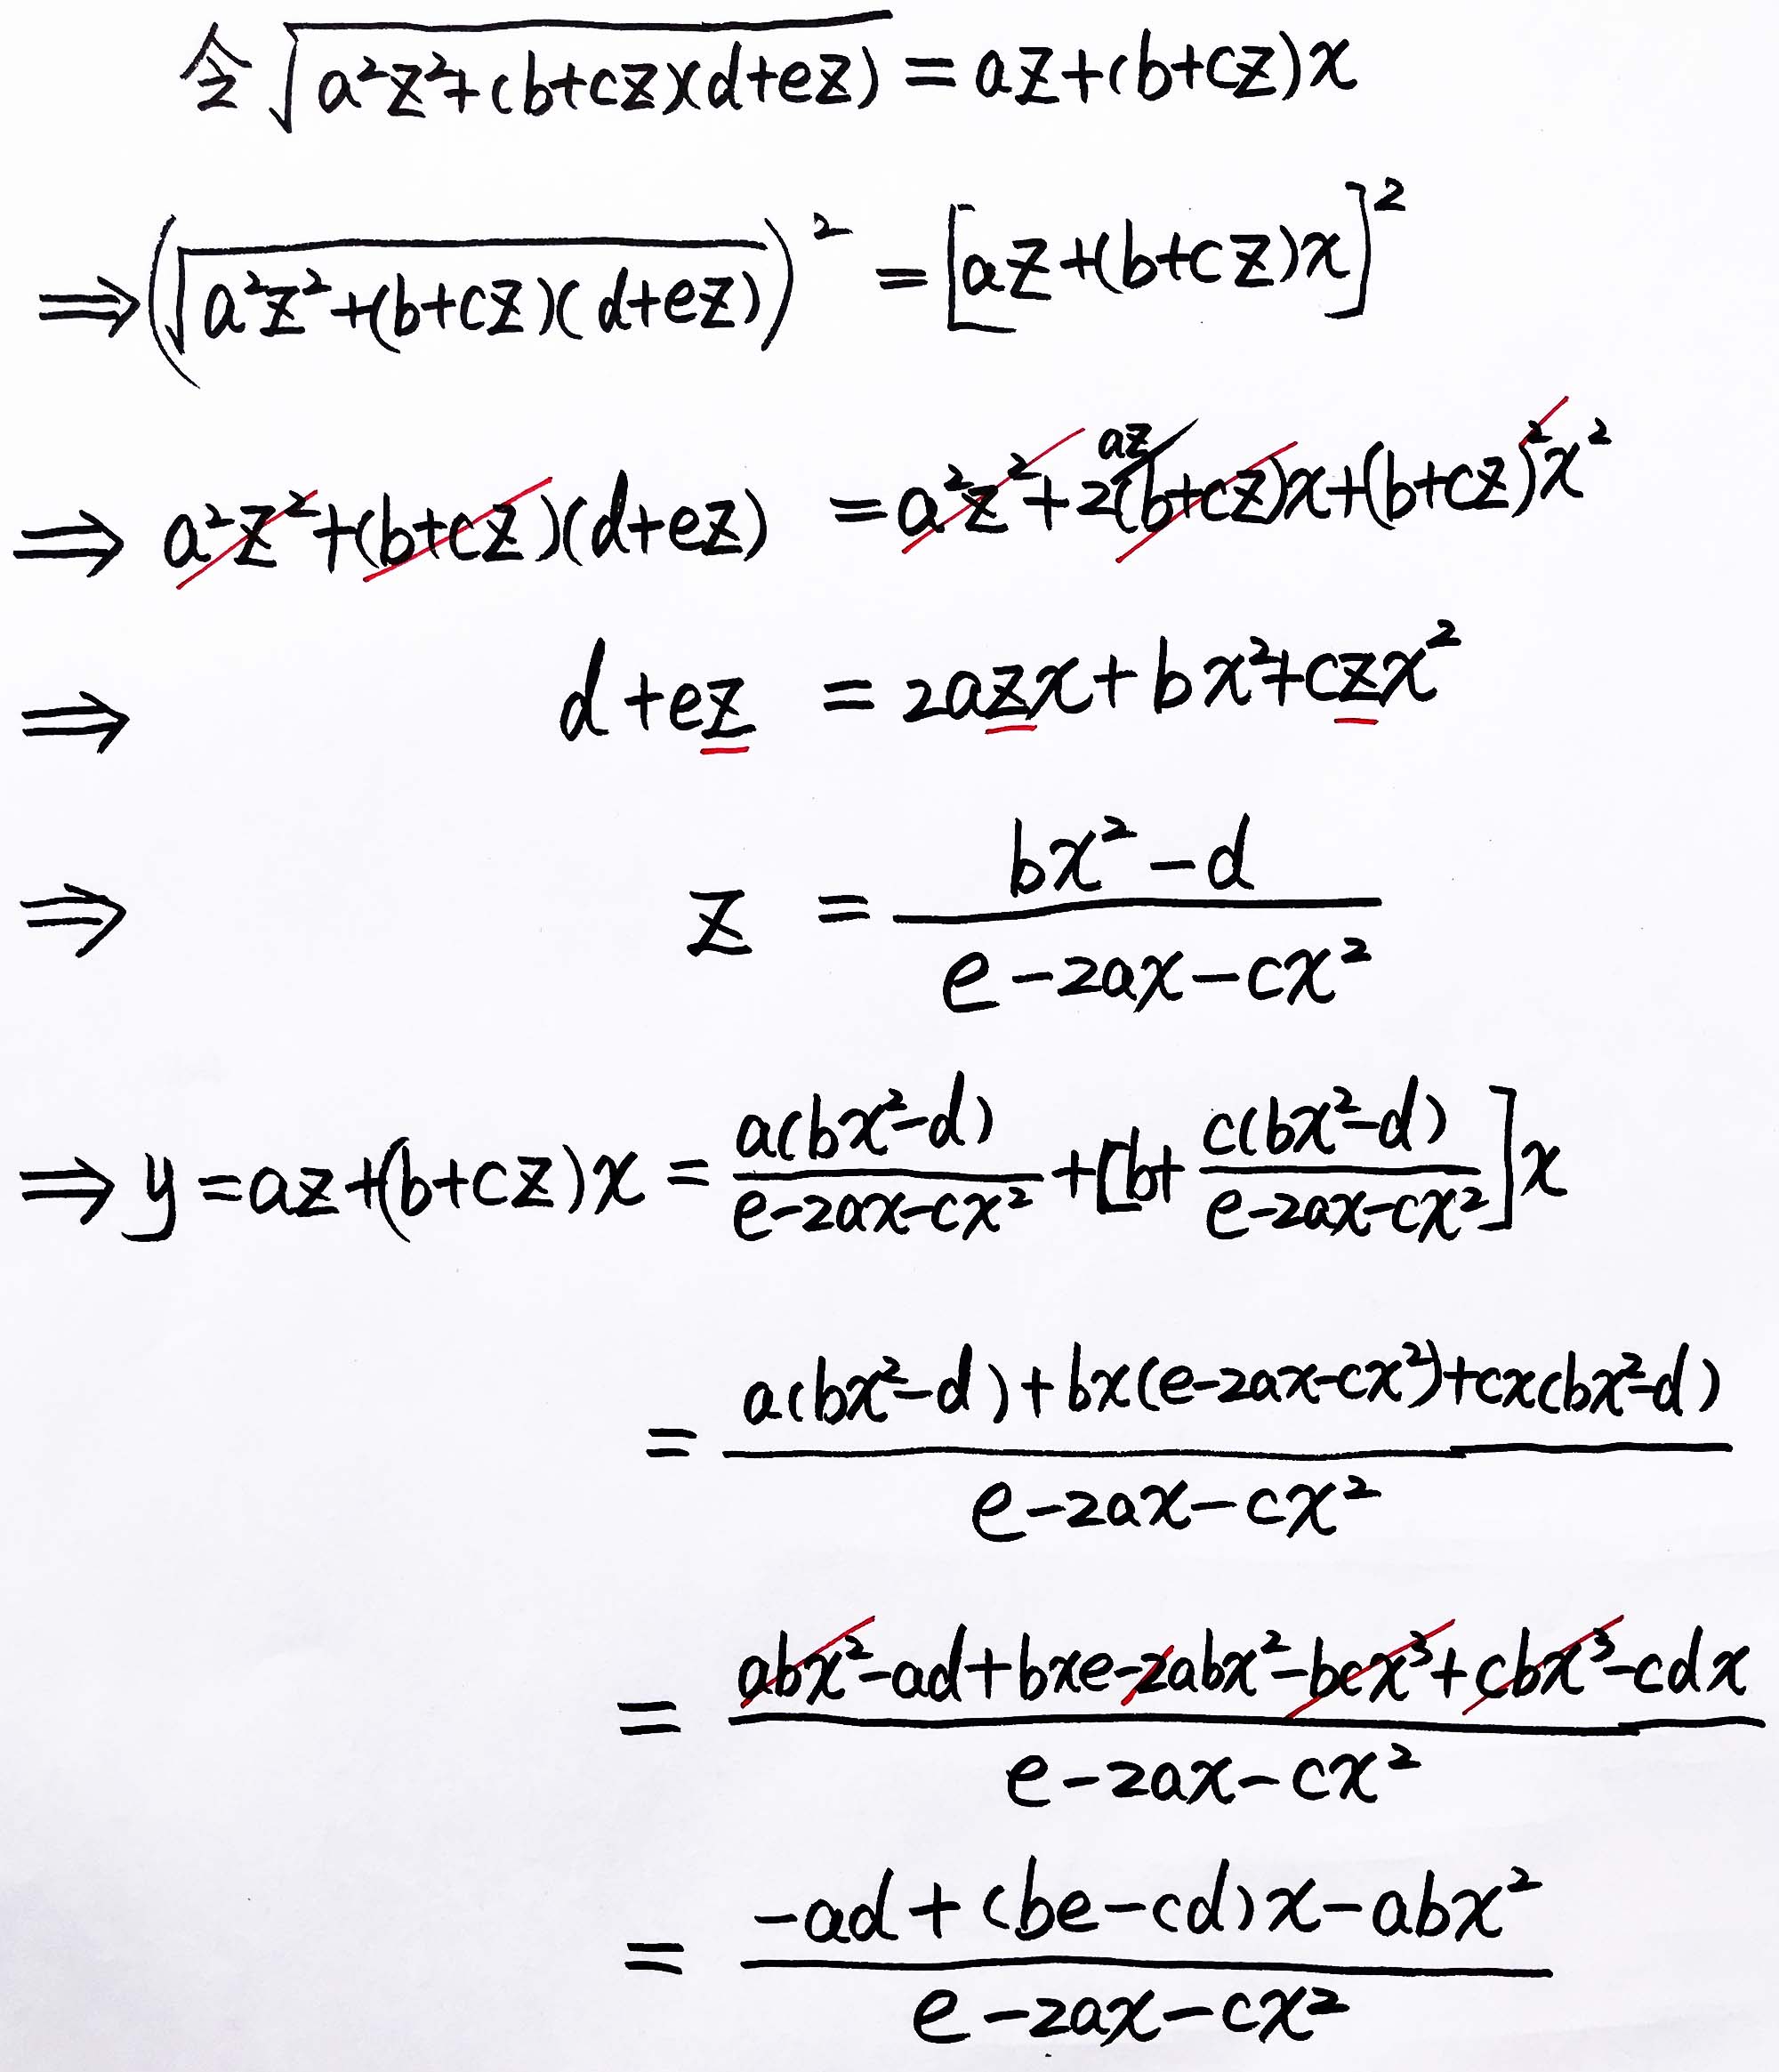 令 √(a²z²+(b+cz)(d+ez)) = az+(b+cz)x
⇒ (√(a²z²+(b+cz)(d+ez)))² = [az+(b+cz)x]²
⇒ a²z²+(b+cz)(d+ez) = a²z²+2az(b+cz)x+(b+cz)²x²
⇒ d+ez = 2azx+bx²+czx²
⇒ z = (bx²-d)/(e-2ax-cx²)
⇒ y=az+(b+cz)x = a(bx²-d)/(e-2ax-cx²) + [b+ c(bx²-d)/(e-2ax-cx²)]x
= (a(bx²-d)+bx(e-2ax-cx²)+cx(bx²-d))/(e-2ax-cx²)
= (abx²-ad+bxe-2abx²-bcx³+cbx³-cdx)/(e-2ax-cx²)
= (-ad+(be-cd)x-abx²)/(e-2ax-cx²)